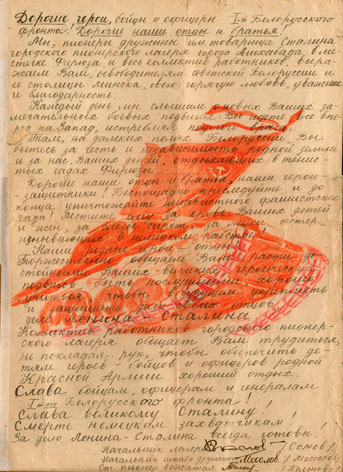 Дорогие герои, бойцы и офицеры I-го Белорусского
фронта! Дорогие наши отцы и братья!
Мы, пионеры дружины им. товарища Сталина
городского пионерского лагеря города Ашхабада, в ме-
стечке Фирюза и весь коллектив работников, выра-
жаем Вам, освободителям советской Белоруссии и
её столицы Минска, свою горячую любовь, уважение
и благодарность.
Каждый день мы слышим о новых Ваших за-
мечательных боевых подвигах. Вы идёте все впе-
рёд на Запад, истребляя
Там, на далеких полях Белоруссии Вы
бьетесь за честь и независимость родной земли
и за нас, Ваших детей, отдыхающих в тенис-
тых садах Фирюзы.
Дорогие наши отцы и братья, наши герои-
защитники! Беспощадно преследуйте и до
конца уничтожайте ненавистного фашистского
гада! Мстите ему за кровь Ваших детей
и жен, за сестер,
Торжественно обещаем Вам расти до-
стойными Ваших великих героических
подвигов, быть послушными, хорошо
учиться,
дела Ленина-Сталина.
Коллектив работников городского пионер-
ского лагеря обещает Вам трудиться,
не покладая рук, чтобы обеспечить де-
тям героев-бойцов и офицеров родной
Красной Армии хороший отдых.
Слава бойцам, офицерам и генералам
I-го Белорусского фронта!
Слава великому Сталину!
Смерть немецким захватчикам!
За дело Ленина-Сталина всегда готовы!
Начальник лагеря
Начальник штаба дружины
От пионер вожатых